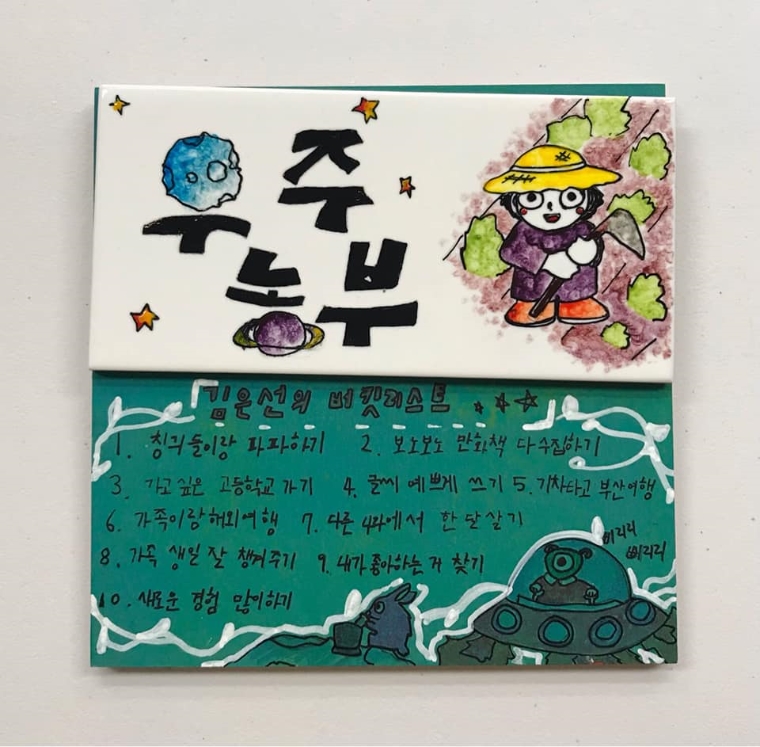 우주
농부
김은선의 버킷리스트
1. 칭긔들이랑 파파하기 2. 보노보노 만화책 다 수집하기
3. 가고 싶은 고등학교 가기 4. 글씨 예쁘게 쓰기 5. 기차타고 부산여행
6. 가족이랑 해외여행 7. 다른 나라에서 한 달 살기
삐리리
삐리리
8. 가족 생일 잘 챙겨주기 9. 내가 좋아하는 거 찾기
10. 새로운 경험 많이하기